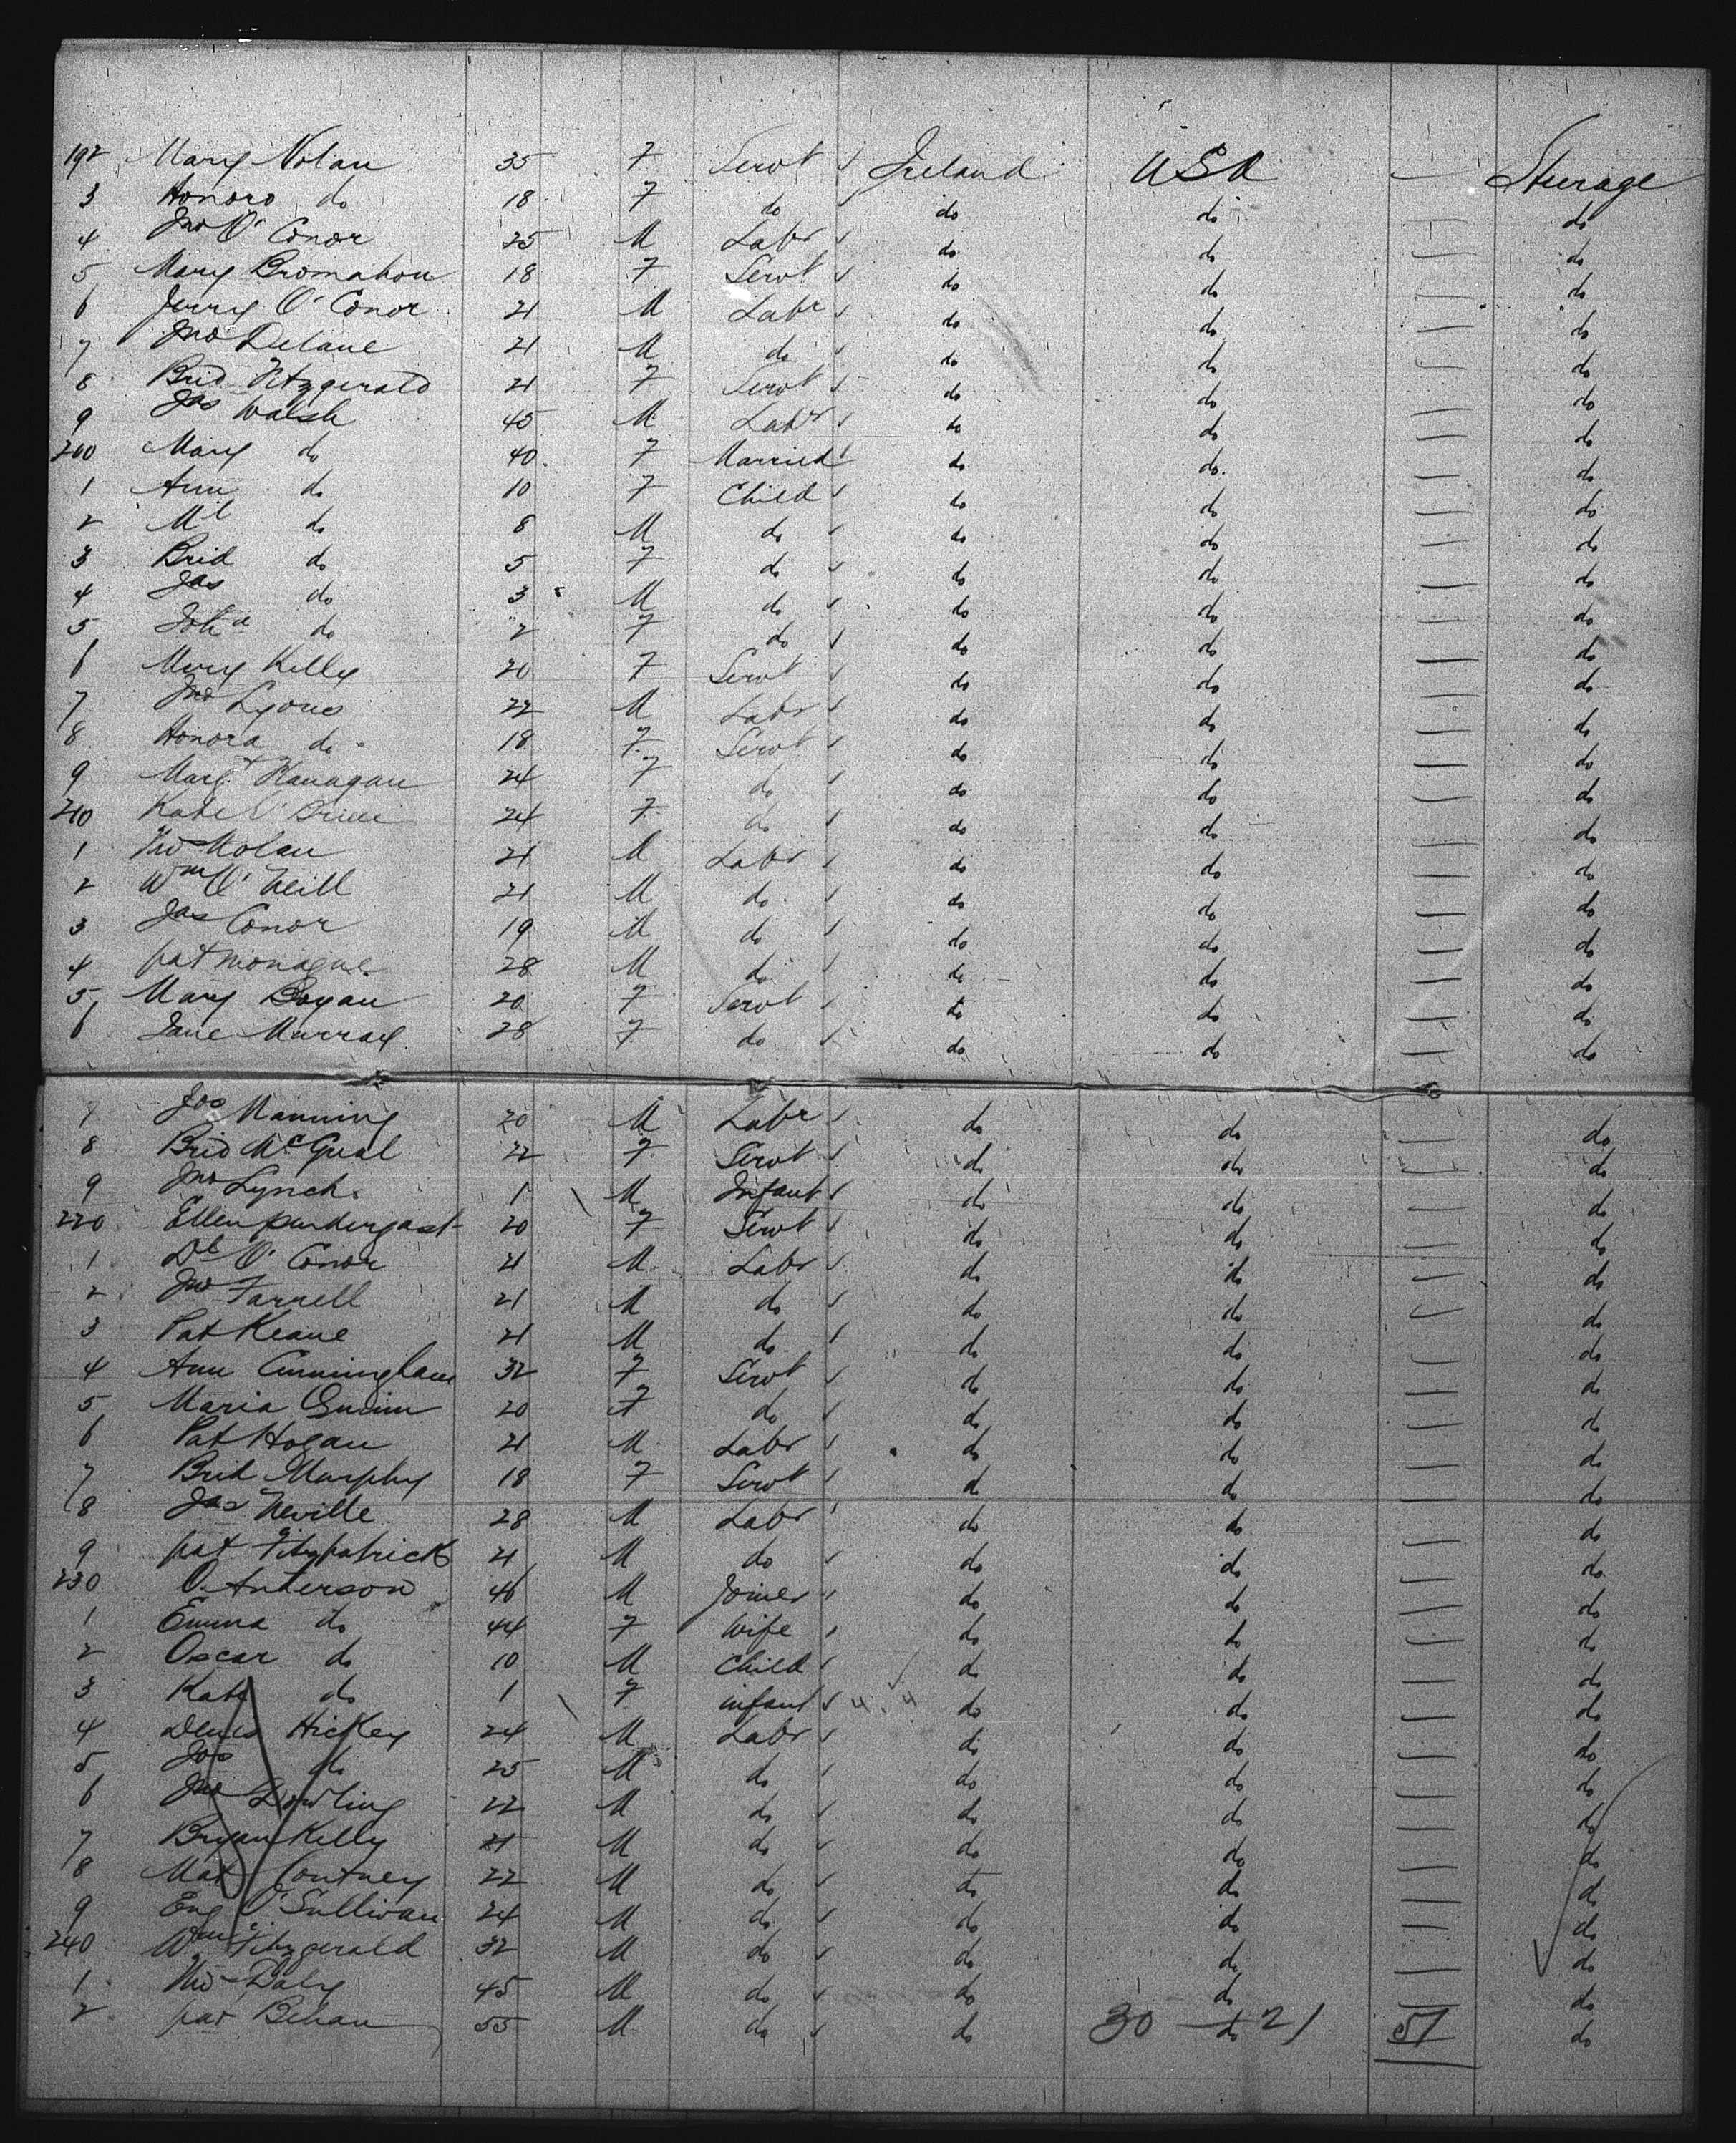 192 Mary Nolan 35 F Servt Ireland USA — Sterage
3 Honoro do 18 F do do do — do
4 Jno O'Conor 25 M Labr do do — do
5 Mary Bromahon 18 F Servt do do — do
6 Jerry O'Conor 21 M Labr do do — do
7 Jno Delane 21 M do do do — do
8 Brid Fitzgerald 21 F Servt do do — do
9 Jas Walsh 45 M Labr do do — do
200 Mary do 40 F Married do do — do
1 Ann do 10 F Child do do — do
2 Ml do 8 M do do do — do
3 Brid do 5 F do do do — do
4 Jas do 3 M do do do — do
5 do 2 F do do do — do
6 Mary Kelly 20 F Servt do do — do
7 Jno Lyons 22 M Labr do do — do
8 Honora do 18 F Servt do do — do
9 Margt Flanagan 24 F do do do — do
210 Kate O'Brien 24 F do do do — do
1 Nolan 21 M Labr do do — do
2 Wm O'Neill 21 M do do do — do
3 Jas Conor 19 M do do do — do
4 pat monague 28 M do do do — do
5 Mary Bogan 20 F Servt do do — do
6 Jane Murray 28 F do do do — do
7 Jos Manning 20 M Labr do do — do
8 Brid McGual 22 F Servt do do — do
9 Jno Lynch 1 M Infant do do — do
220 Ellen pendergast 20 F Servt do do — do
1 Dl O'Conor 21 M Labr do do — do
2 Jno Farrell 21 M do do do — do
3 Pat Keane 21 M do do do — do
4 Ann Cunningham 32 F Servt do do — do
5 Maria Quinn 20 F do do do — do
6 Pat Hogan 21 M Labr do do — do
7 Brid Murphy 18 F Servt do do — do
8 Jas Neville 28 M Labr do do — do
9 pat Fitzpatrick 21 M do do do — do
230 O. Anterson 46 M Joiner do do — do
1 Emma do 44 F Wife do do — do
2 Oscar do 10 M Child do do — do
3 Kate do 1 F infant do do — do
4 Denis Hickey 24 M Labr do do — do
5 Jos do 25 M do do do — do
6 Jno Dowling 22 M do do do — do
7 Bryan Kelly 21 M do do do — do
8 Mat Contney 22 M do do do — do
9 Eug O'Sullivan 24 M do do do — do
240 Wm Fitzgerald 32 M do do do — do
1 Daly 45 M do do do — do
2 pat Behan 55 M do do 30 do 21 51 do